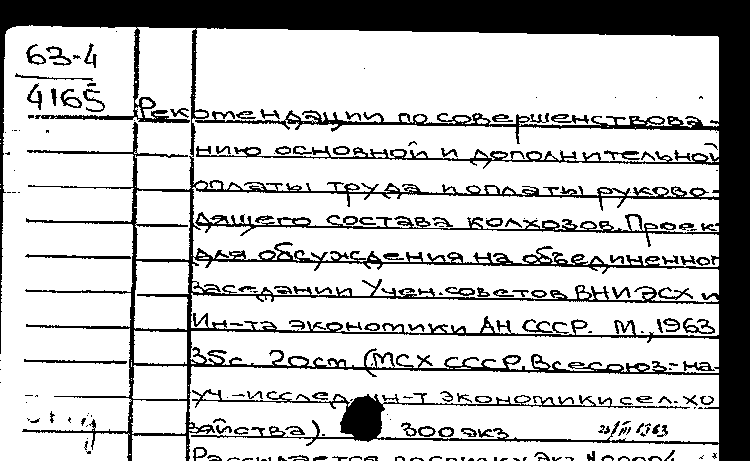 63-4
4165
Рекомендации по совершенствова-
нию основной и дополнительной
оплаты труда и оплаты руково-
дящего состава колхозов. Проек
для обсуждения на объединенног
заседании Учен. советов ВНИЭСХ и
Ин-та экономики АН СССР. М., 1963
35с. 20см. (МСХ СССР. Всесоюз. на-
уч.-исслед. ин-т экономики сел. хо
зяйства). 300 экз.
Рассылается по списку. Экз. №00004